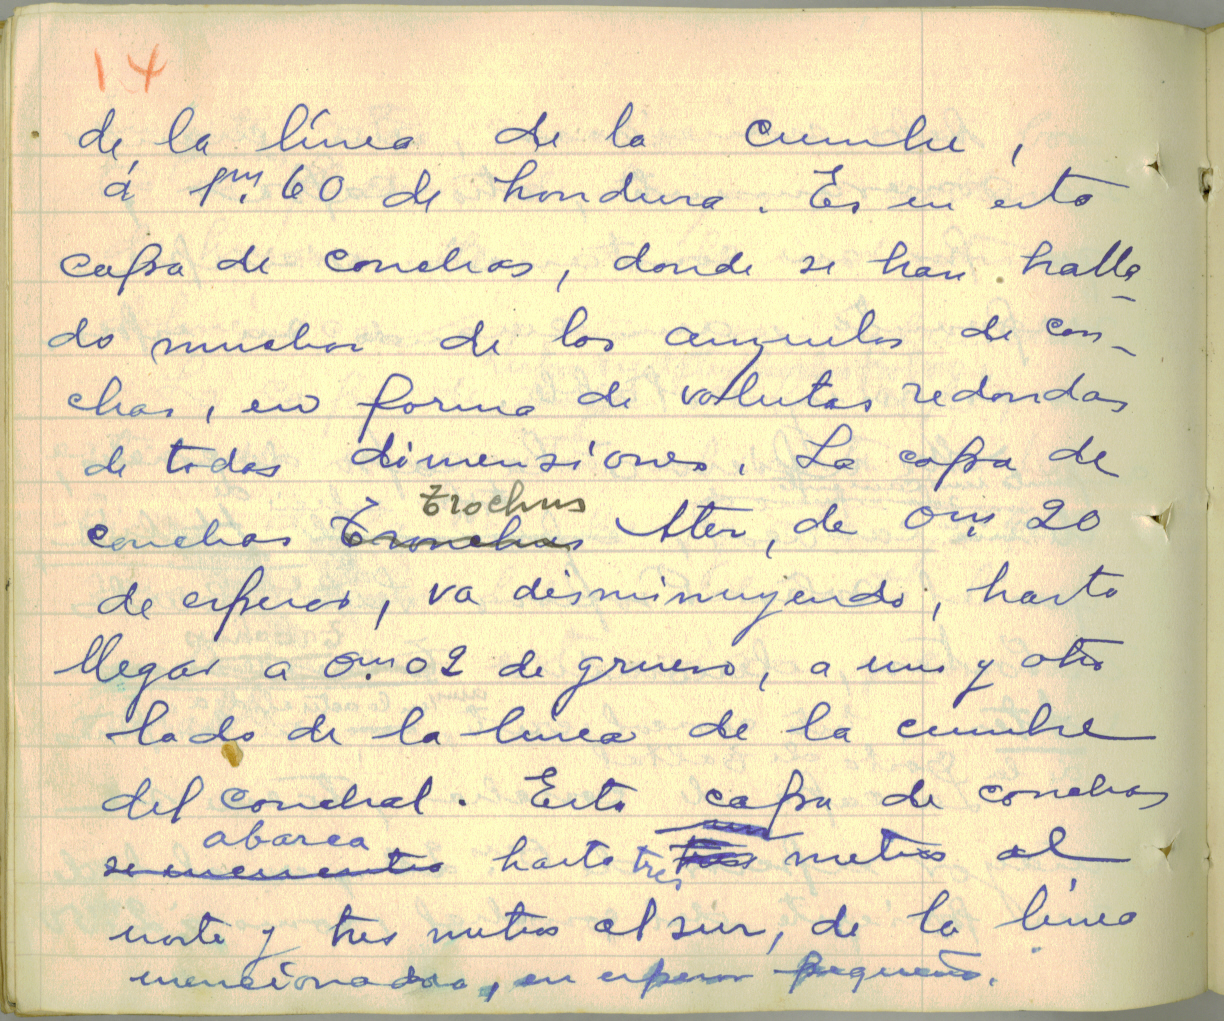 14
de la línea de la cumbre,
á 1m.60 de hondura. Es en esta
capa de conchas, donde se han halla-
do muchos de los anzuelos de con-
chas, en forma de volutas redondas
de todas dimensiones. La capa de
Trochus
conchas Tronchas Ater, de 0m.20
de espesor, va disminuyendo, hasta
llegar a 0m.02 de grueso, a uno y otro
lado de la línea de la cumbre
del conchal. Esta capa de conchas
abarca
se encuentra hasta tres metros al
norte y tres metros al sur, de la línea
mencionada, en espesor pequeño.